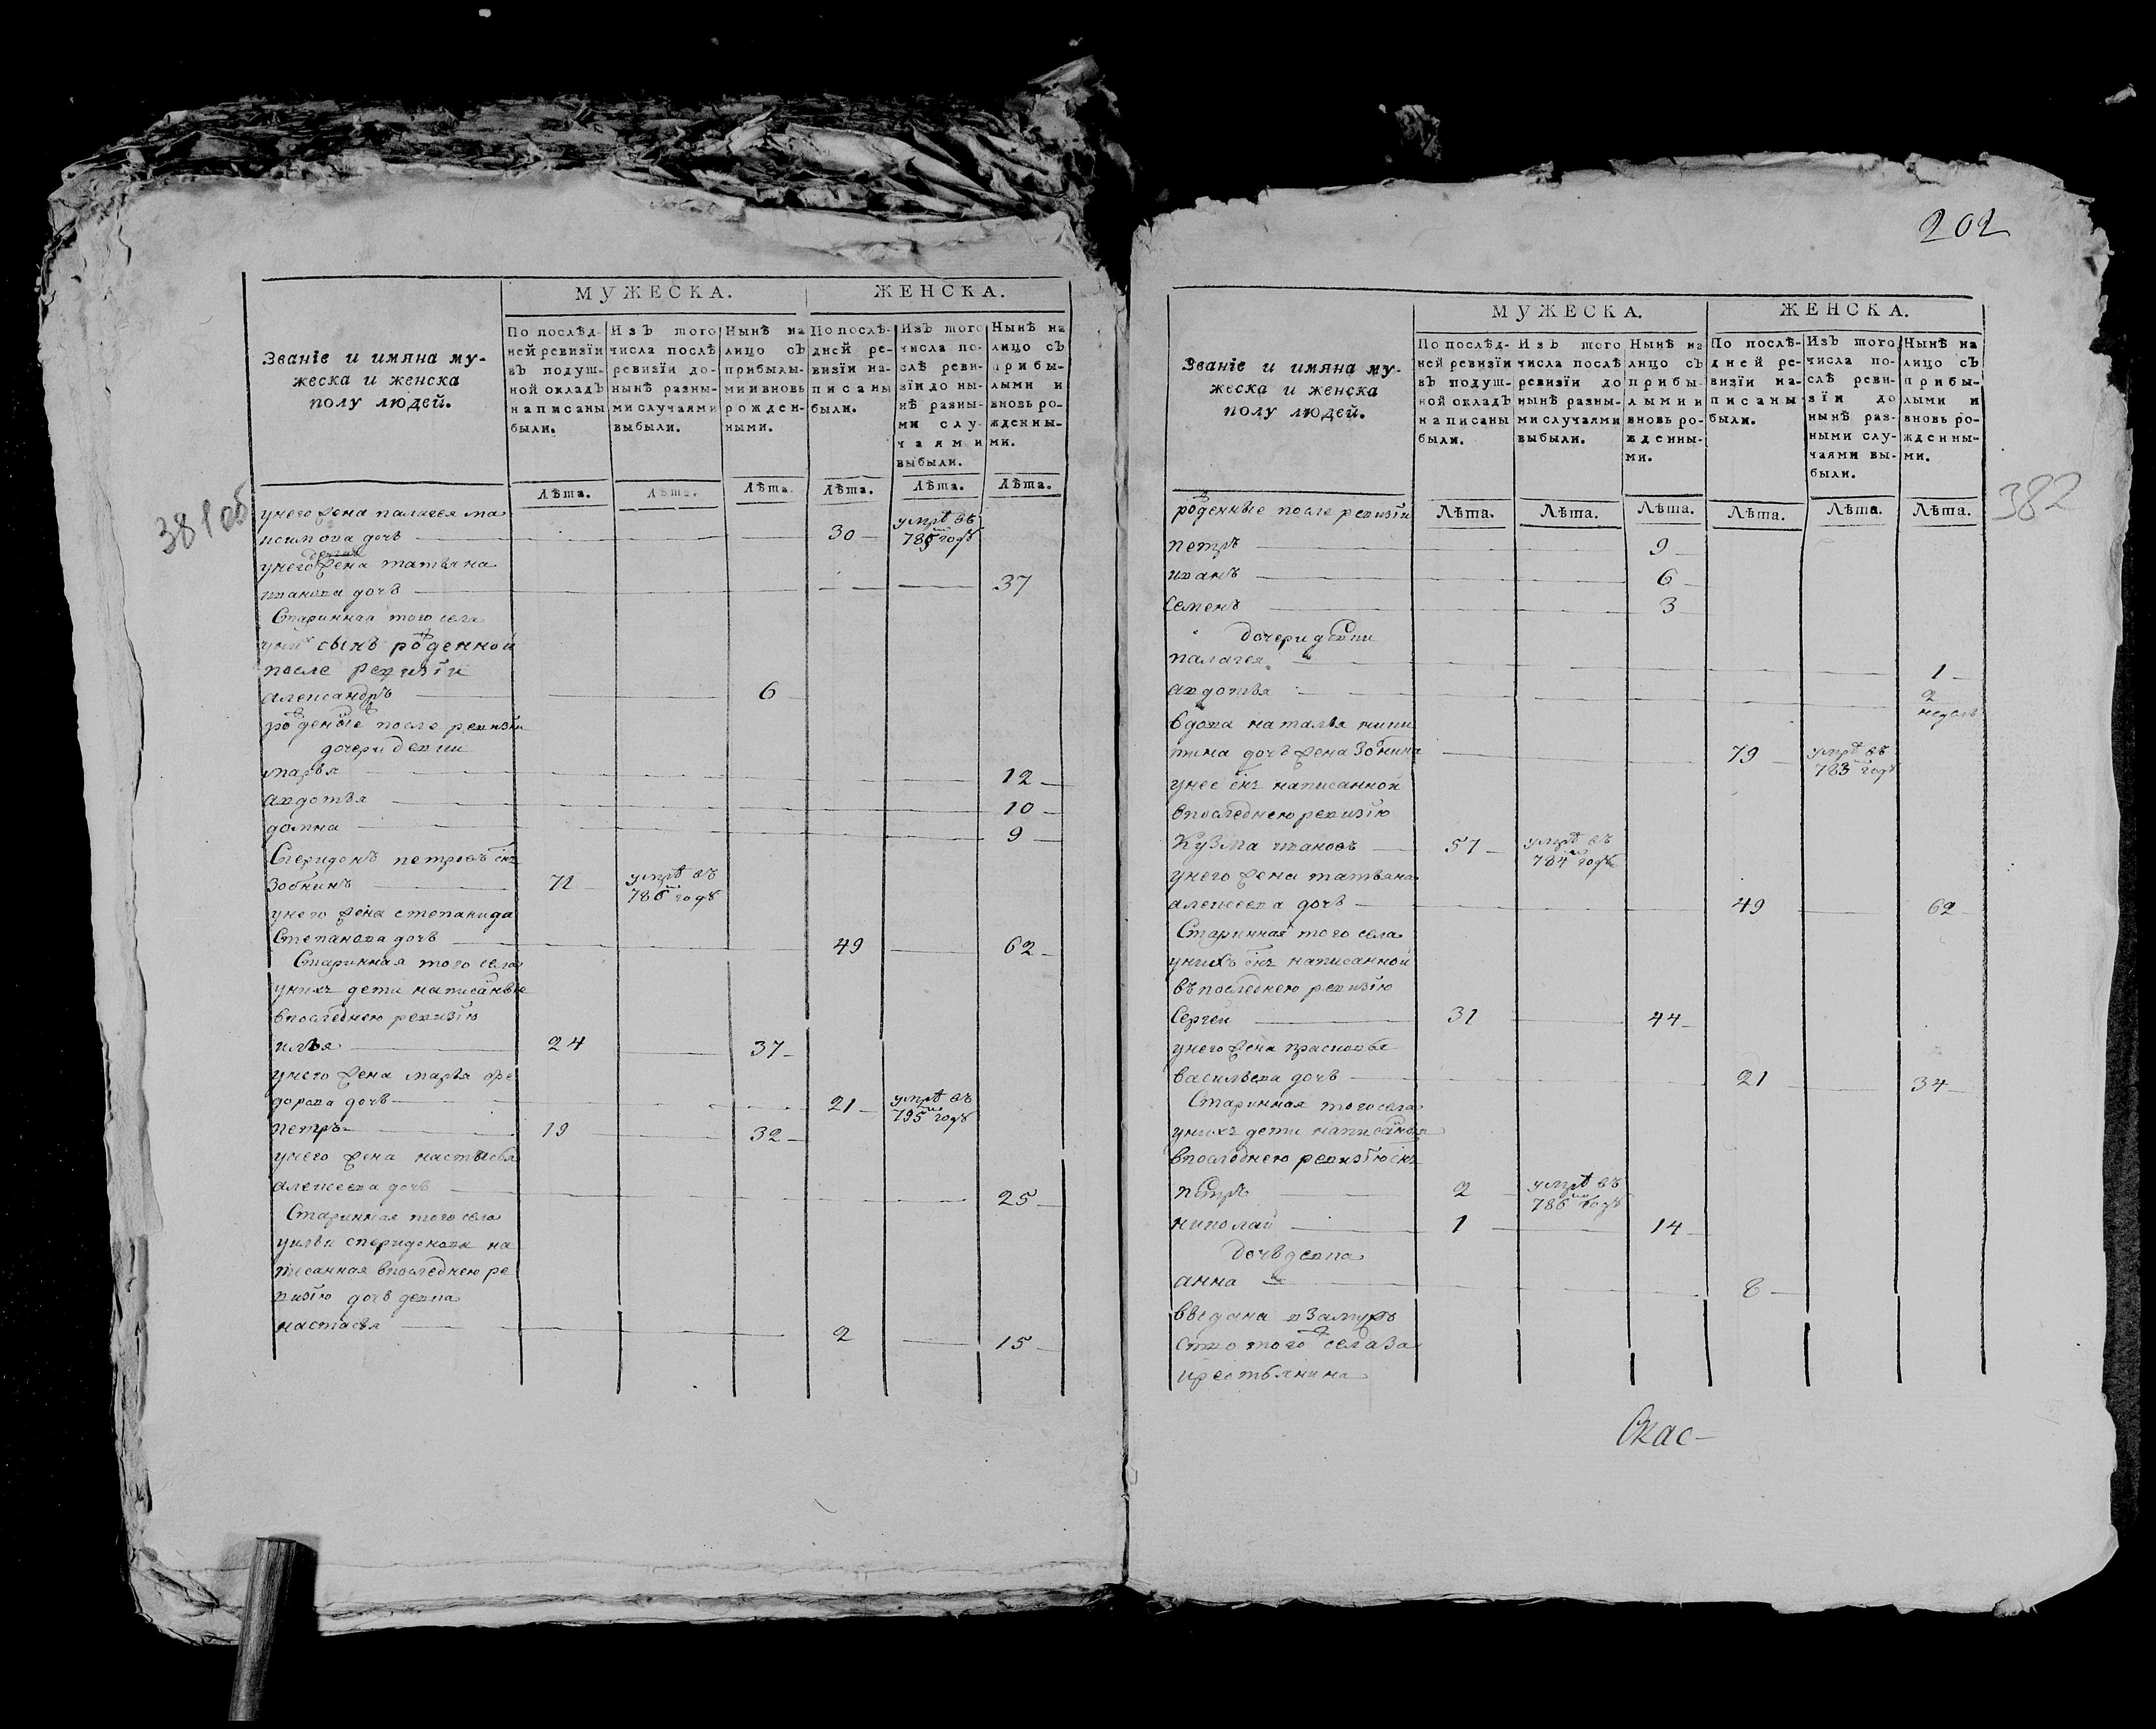 381об
МУЖЕСКА.
ЖЕНСКА.
Званіе и имяна му-
жеска и женска
полу людей.
По послѣд-
ней ревизїи
въ подуш-
ной окладъ
написаны
были.
Изъ того
числа послѣ
ревизїи до-
нынѣ разны-
ми случаями
выбыли.
Нынѣ на
лицо съ
прибылы-
ми и вновь
рожден-
ными.
По послѣ-
дней ре-
визїи на-
писаны
были.
Изъ того
числа по-
слѣ реви-
зїи до ны-
нѣ разны-
ми слу-
чаями
выбыли.
Нынѣ на
лицо съ
прибы-
лыми и
вновь ро-
жденны-
ми.
Лѣта. Лѣта. Лѣта. Лѣта. Лѣта. Лѣта.
унего жена палагея ма
ѯимова дочь 30 умрѣ въ 785 годѣ
унего жена татьяна
иванова дочь 37
Старинная того села
уних сынъ рожденной
после ревизїи
александръ 6
рожденые после ревизїи
дочери девки
марья 12
авдотья 10
домна 9
Спиридонъ петровъ снъ
Зобнинъ 72 умрѣ въ 786 годѣ
унего жена степанида
Степанова дочь 49 62
Старинная того села
унихъ дети написаные
впоследнею ревизїю
илья 24 37
унего жена марья фе
дорова дочь 21 умрѣ въ 795 годѣ
петръ 19 32
унего жена настасья
алексеева дочь 25
Старинная того села
уильи спиридонова на
писанная впоследнею ре
визїю дочь девка
настасья 2 15
202
382
МУЖЕСКА.
ЖЕНСКА.
Званіе и имяна му-
жеска и женска
полу людей.
По послѣд-
ней ревизїи
въ подуш-
ной окладъ
написаны
были.
Изъ того
числа послѣ
ревизїи до
нынѣ разны-
ми случаями
выбыли.
Нынѣ на
лицо съ
прибы-
лыми и
вновь ро-
жденны-
ми.
По послѣ-
дней ре-
визїи на-
писаны
были.
Изъ того
числа по-
слѣ реви-
зїи до
нынѣ раз-
ными слу-
чаями вы-
были.
Нынѣ на
лицо съ
прибы-
лыми и
вновь ро-
жденны-
ми.
Лѣта. Лѣта. Лѣта. Лѣта. Лѣта. Лѣта.
рожденные после ревизїи
петръ 9
иванъ 6
Семенъ 3
дочери девки
палагея 1
авдотья 2 недель
вдова наталья ники
тина дочь жена Зобнина 79 умрѣ въ 783 годѣ
унее снъ написанной
впоследнею ревизїю
Кузма ивановъ 57 умрѣ въ 784 годѣ
унего жена татьяна
алексеева дочь 49 62
Старинная того села
унихъ снъ написанной
въпоследнею ревизїю
Сергей 31 44
унего жена прасковья
васильева дочь 21 34
Старинная того села
унихъ дети написаныя
впоследнею ревизїю снъ
петръ 2 умрѣ въ 786 годѣ
николай 1 14
дочь девка
анна 8
выдана взамуж
ство того ж села за
крестьянина
Скас-